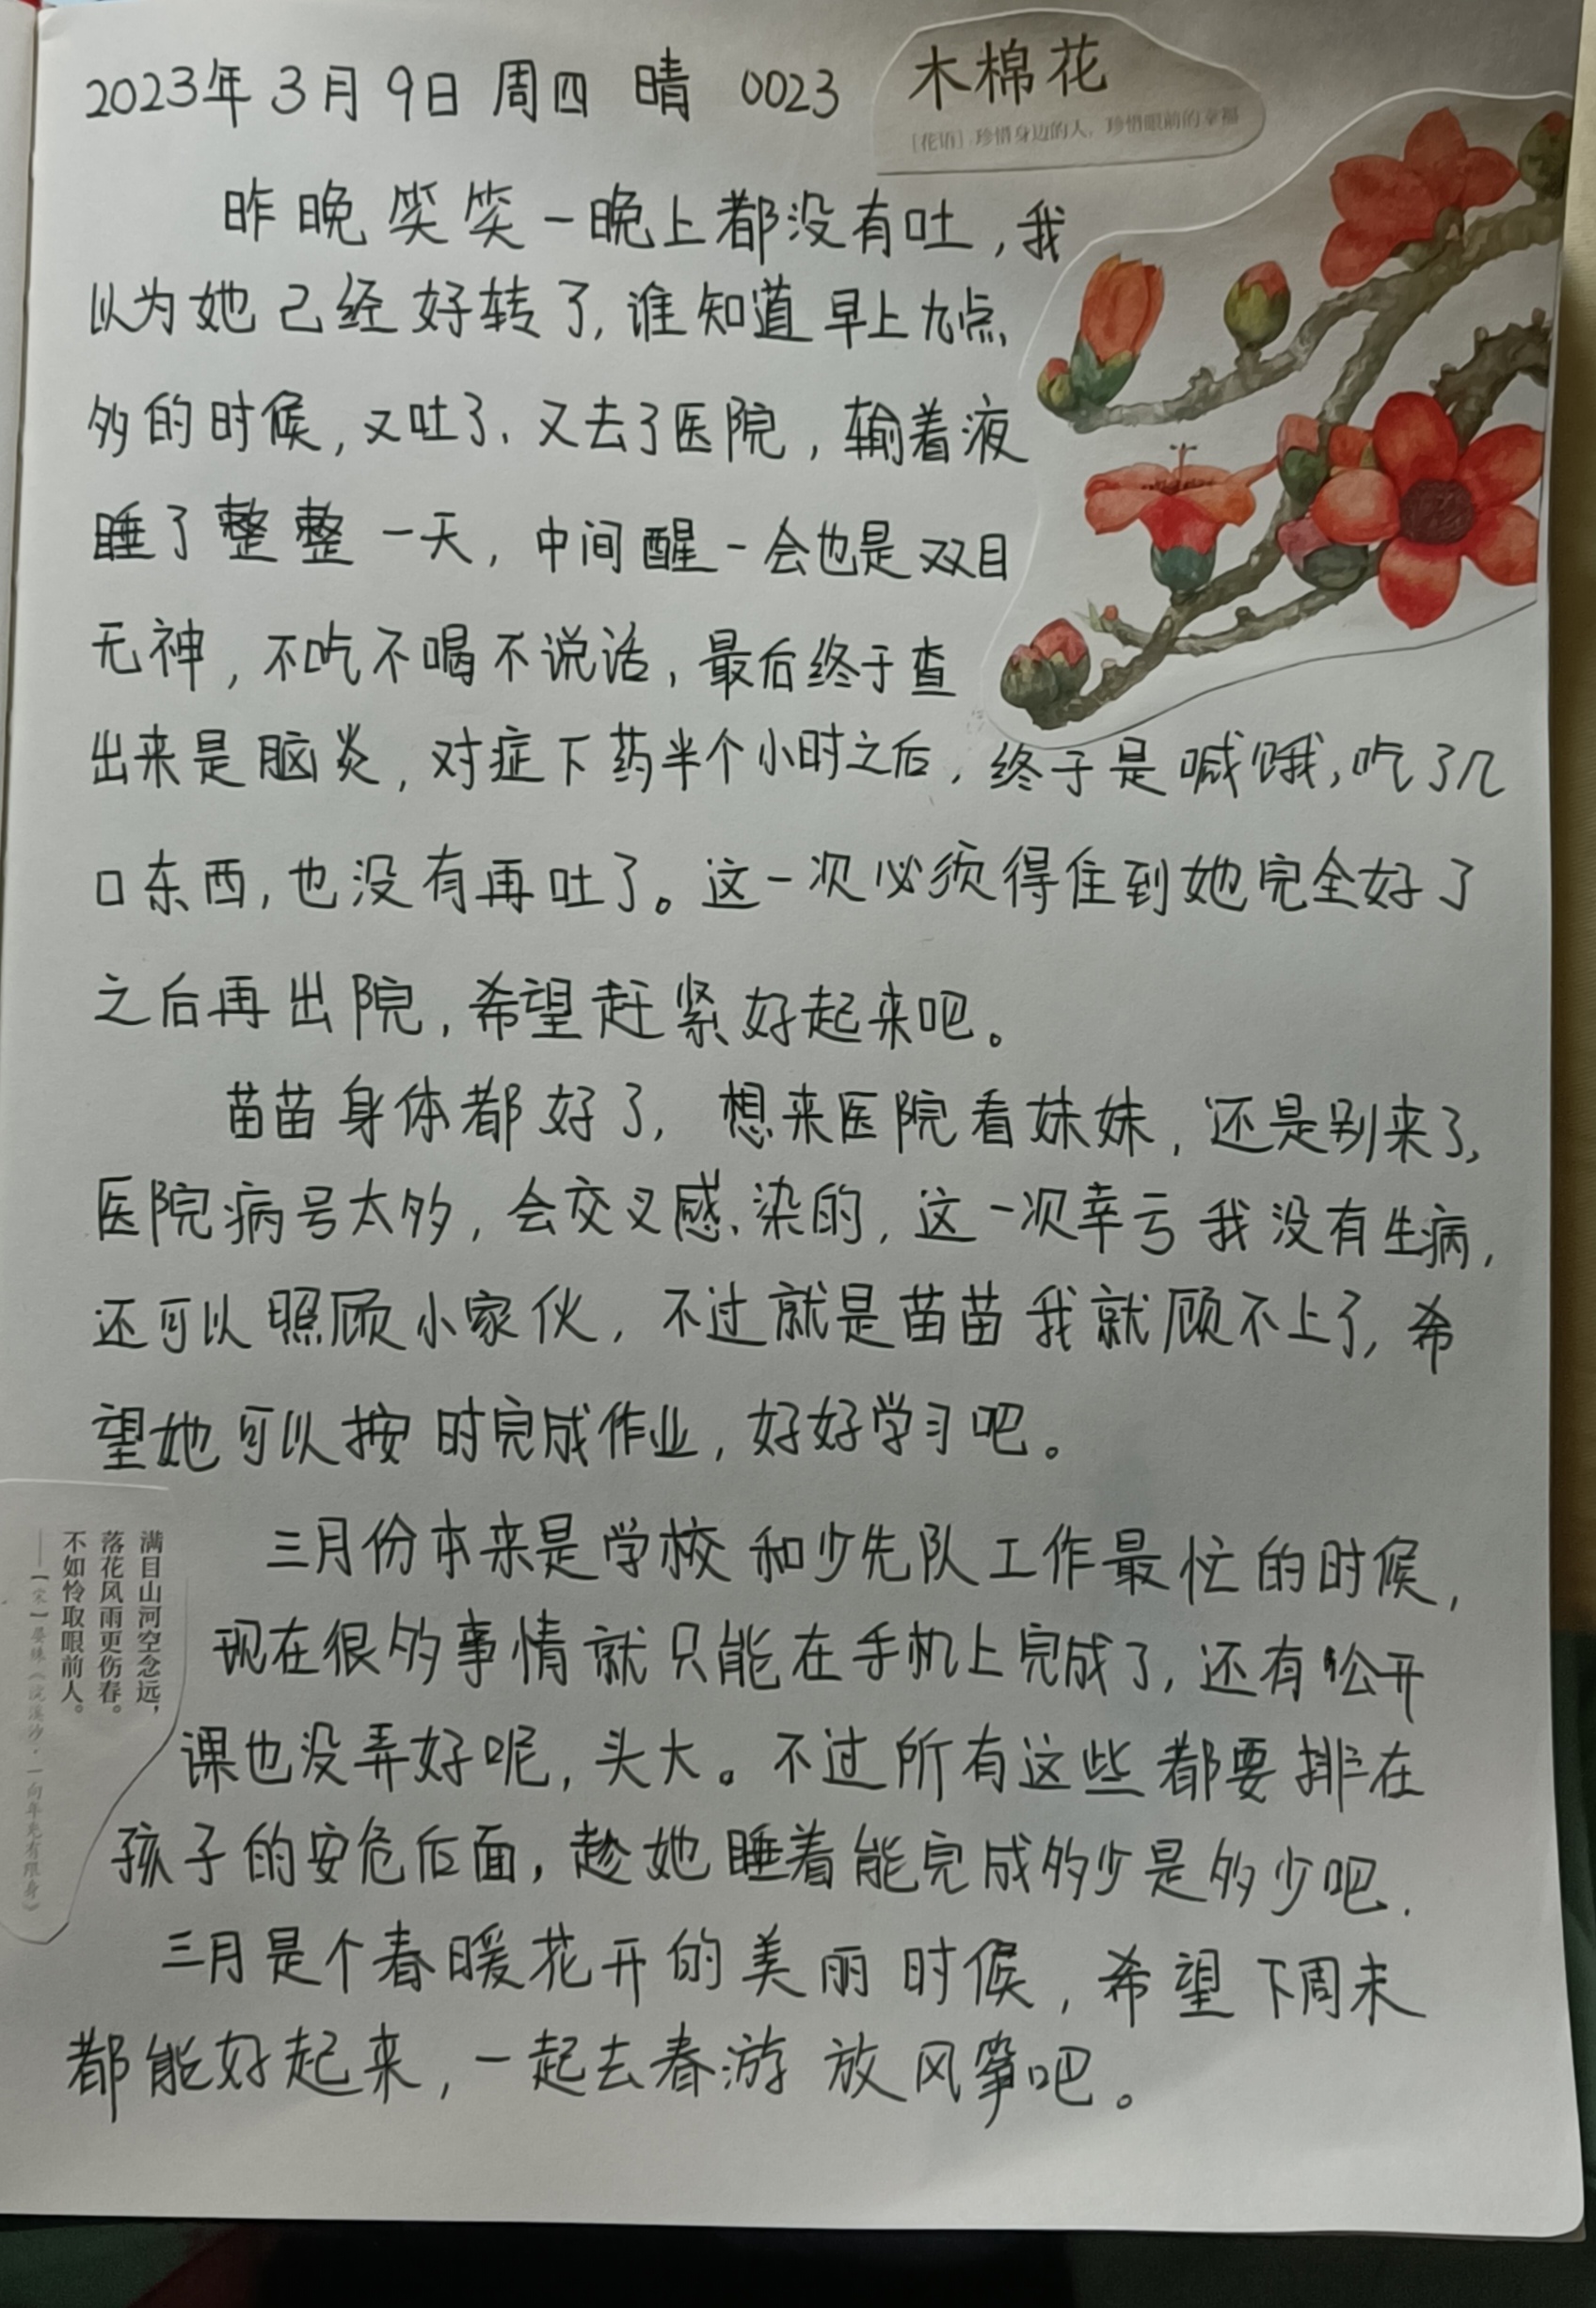 2023年3月9日 周四 晴 0023
木棉花
[花语] 珍惜身边的人，珍惜眼前的幸福
昨晚笑笑一晚上都没有吐，我
以为她已经好转了，谁知道早上九点
多的时候，又吐了、又去了医院，输着液
睡了整整一天，中间醒一会也是双目
无神，不吃不喝不说话，最后终于查
出来是脑炎，对症下药半个小时之后，终于是喊饿，吃了几
口东西，也没有再吐了。这一次必须得住到她完全好了
之后再出院，希望赶紧好起来吧。
苗苗身体都好了，想来医院看妹妹，还是别来了，
医院病号太多，会交叉感染的，这一次幸亏我没有生病，
还可以照顾小家伙，不过就是苗苗我就顾不上了，希
望她可以按时完成作业，好好学习吧。
三月份本来是学校和少先队工作最忙的时候，
现在很多事情就只能在手机上完成了，还有公开
课也没弄好呢，头大。不过所有这些都要排在
孩子的安危后面，趁她睡着能完成多少是多少吧．
三月是个春暖花开的美丽时候，希望下周末
都能好起来，一起去春游放风筝吧。
满目山河空念远，
落花风雨更伤春。
不如怜取眼前人。
——［宋］晏殊《浣溪沙·一向年光有限身》